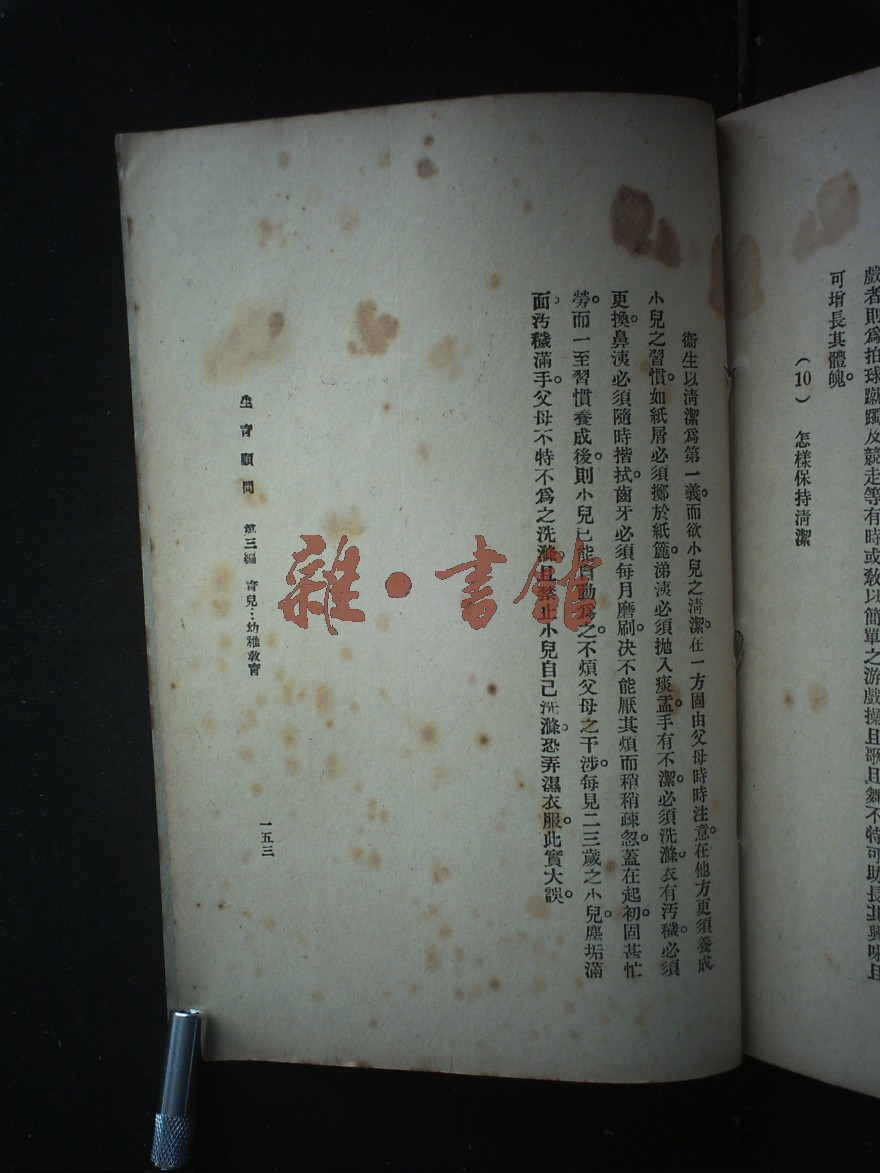 戲者則爲拍球蹴踘及競走等有時或敎以簡單之游戲操且歌且舞不特可助長其興味且
可增長其體魄。
(10) 怎樣保持淸潔
衞生以淸潔爲第一義。而欲小兒之淸潔。在一方固由父母時時注意。在他方更須養成
小兒之習慣。如紙屑必須擲於紙簏。涕洟必須拋入痰盂。手有不潔。必須洗滌。衣有汚穢。必須
更換。鼻洟必須隨時揩拭。齒牙必須每月磨刷。决不能厭其煩而稍稍疎忽。蓋在起初。固甚忙
勞。而一至習慣養成後。則小兒已能自動爲之。不煩父母之干涉。每見二三歲之小兒。塵垢滿
面。汚穢滿手。父母不特不爲之洗滌。且禁止小兒自己洗滌。恐弄濕衣服。此實大誤。
生育顧問 第三編 育兒:幼稚敎育
一五三
雜·書館